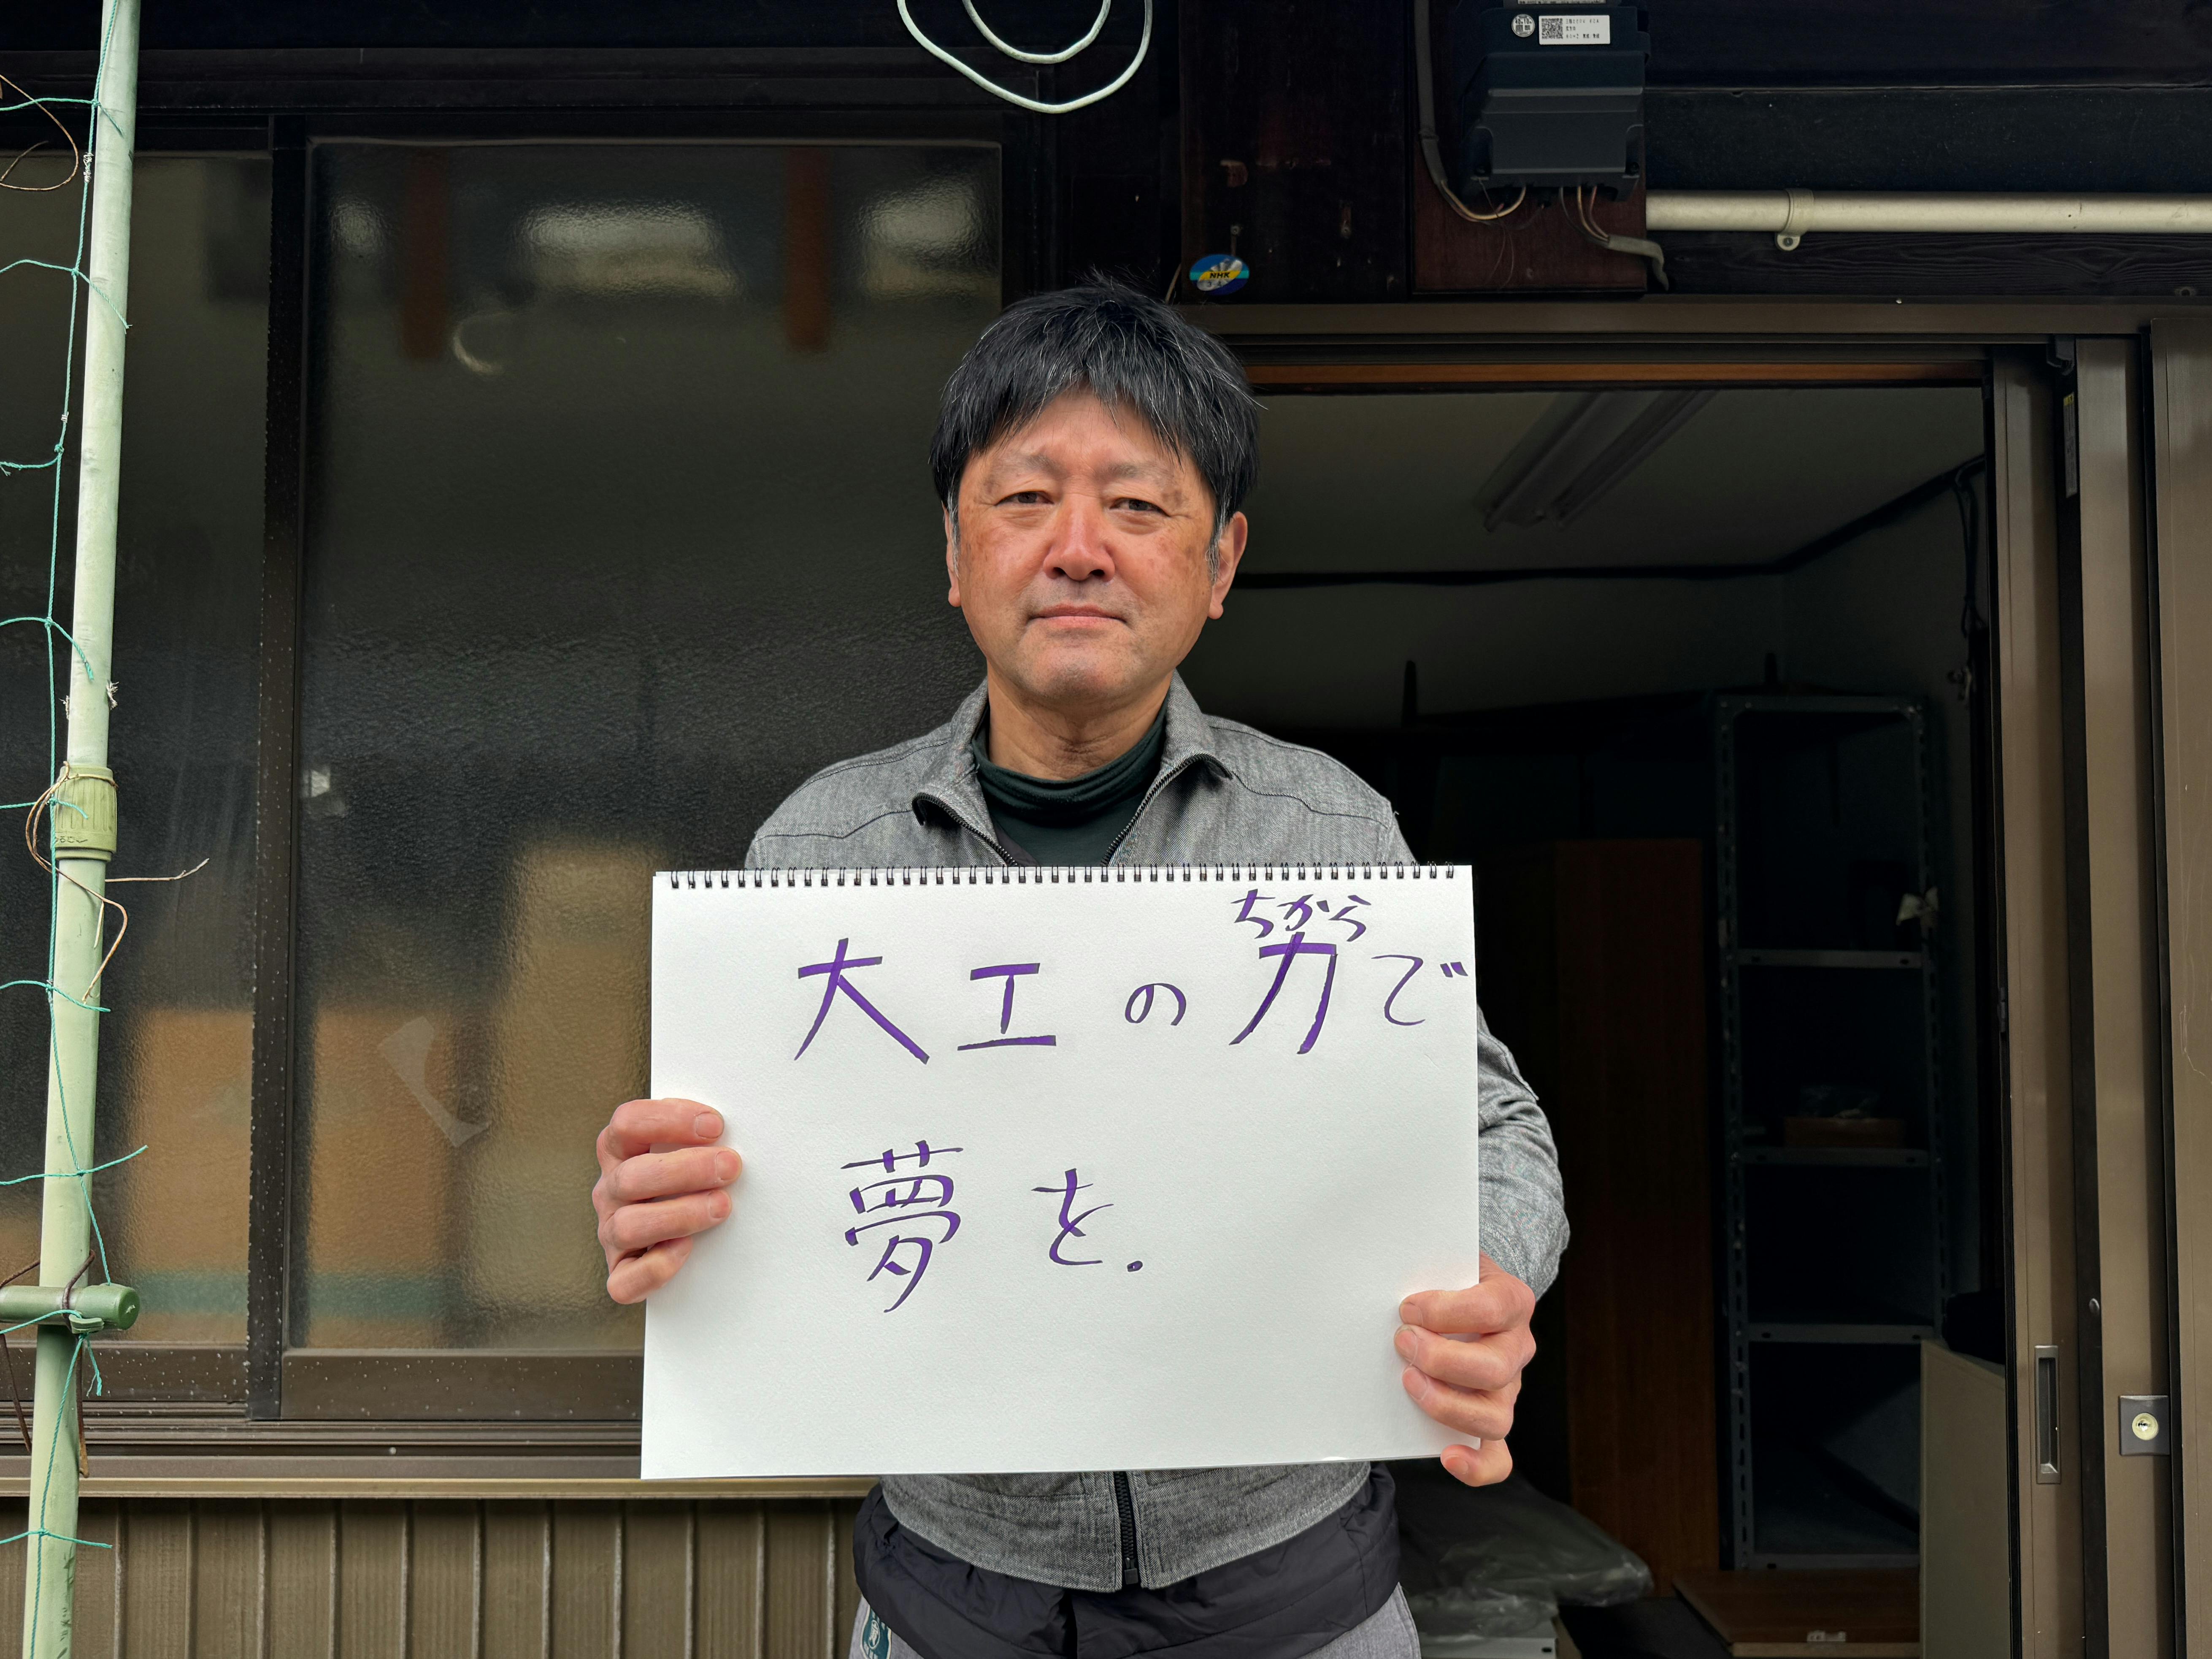 NHK
ちから
大工の力で
夢を.